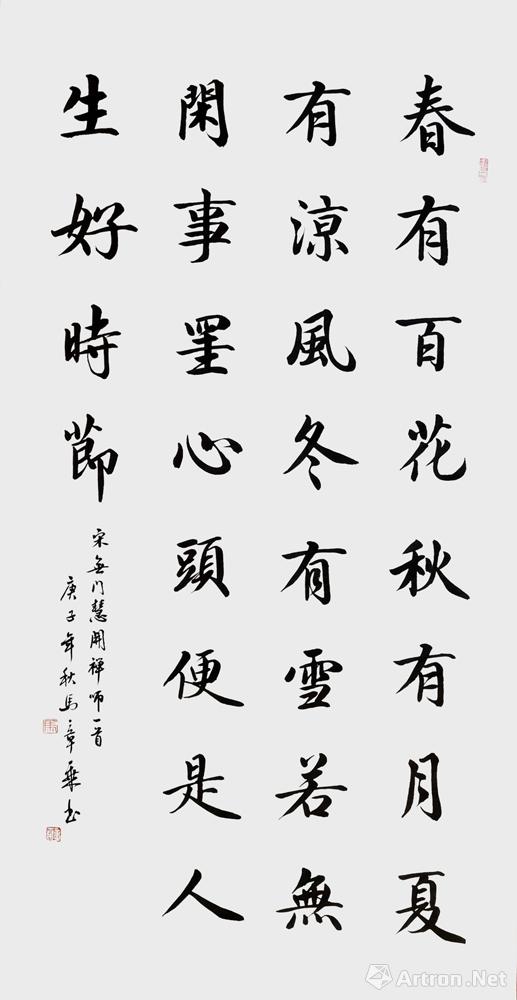 春有百花秋有月夏
有涼風冬有雪若無
閑事罣心頭便是人
生好時節
宋無門慧開禪師一首
庚子年秋馬章乘书
Artron.Net